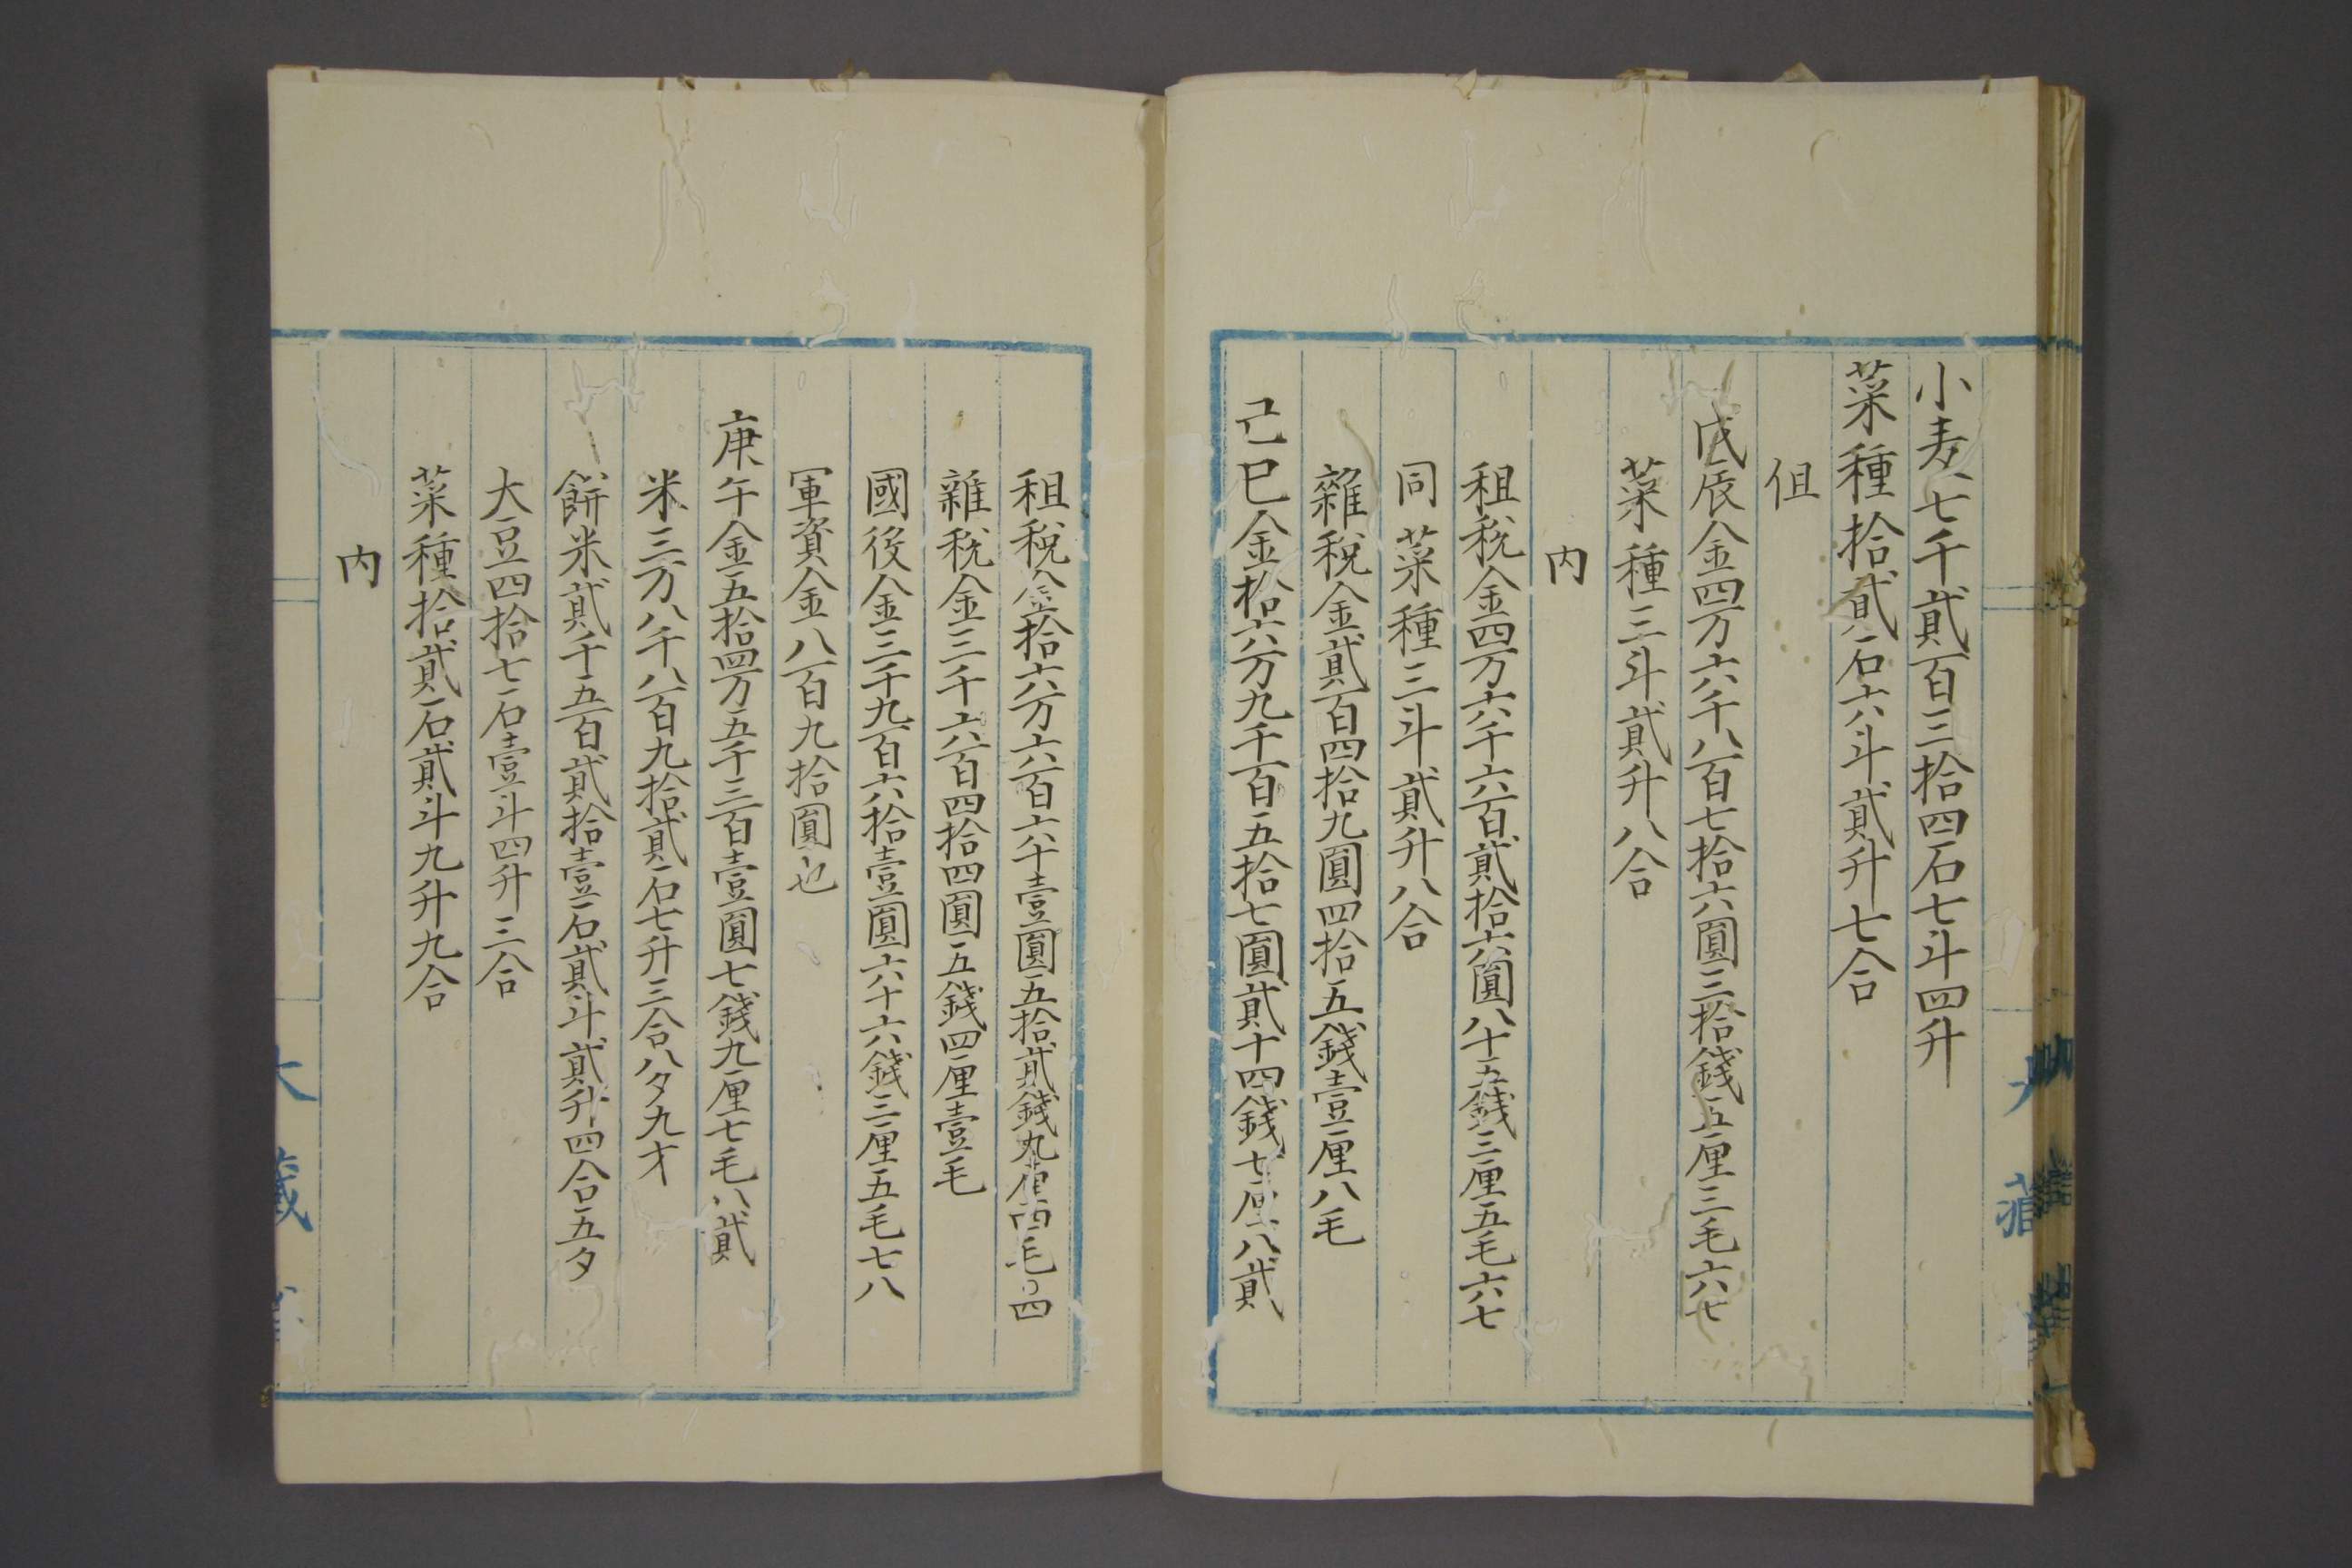 小麦七千貳百三拾四石七斗四升
菜種拾貳石六斗貳升七合
但
戊辰金四万六千八百七拾六圓三拾錢五厘三毛六七
菜種三斗貳升八合
内
租税金四万六千六百貳拾六圓八十五錢三厘五毛六七
同菜種三斗貳升八合
雜税金貳百四拾九圓四拾五錢壹厘八毛
己巳金拾六万九千百五拾七圓貳十四錢七厘八貳
租税金拾六万六百六十壹圓五拾貳錢九厘四毛〇四
雜税金三千六百四拾四圓五錢四厘壹毛
國役金三千九百六拾壹圓六十六錢三厘五毛七八
軍資金八百九拾圓也
庚午金五拾四万五千三百壹圓七錢九厘七毛八貳
米三万八千八百九拾貳石七升三合八夕九才
餅米貳千五百貳拾壹石貳斗貳升四合五夕
大豆四拾七石壹斗四升三合
菜種拾貳石貳斗九升九合
内
大藏